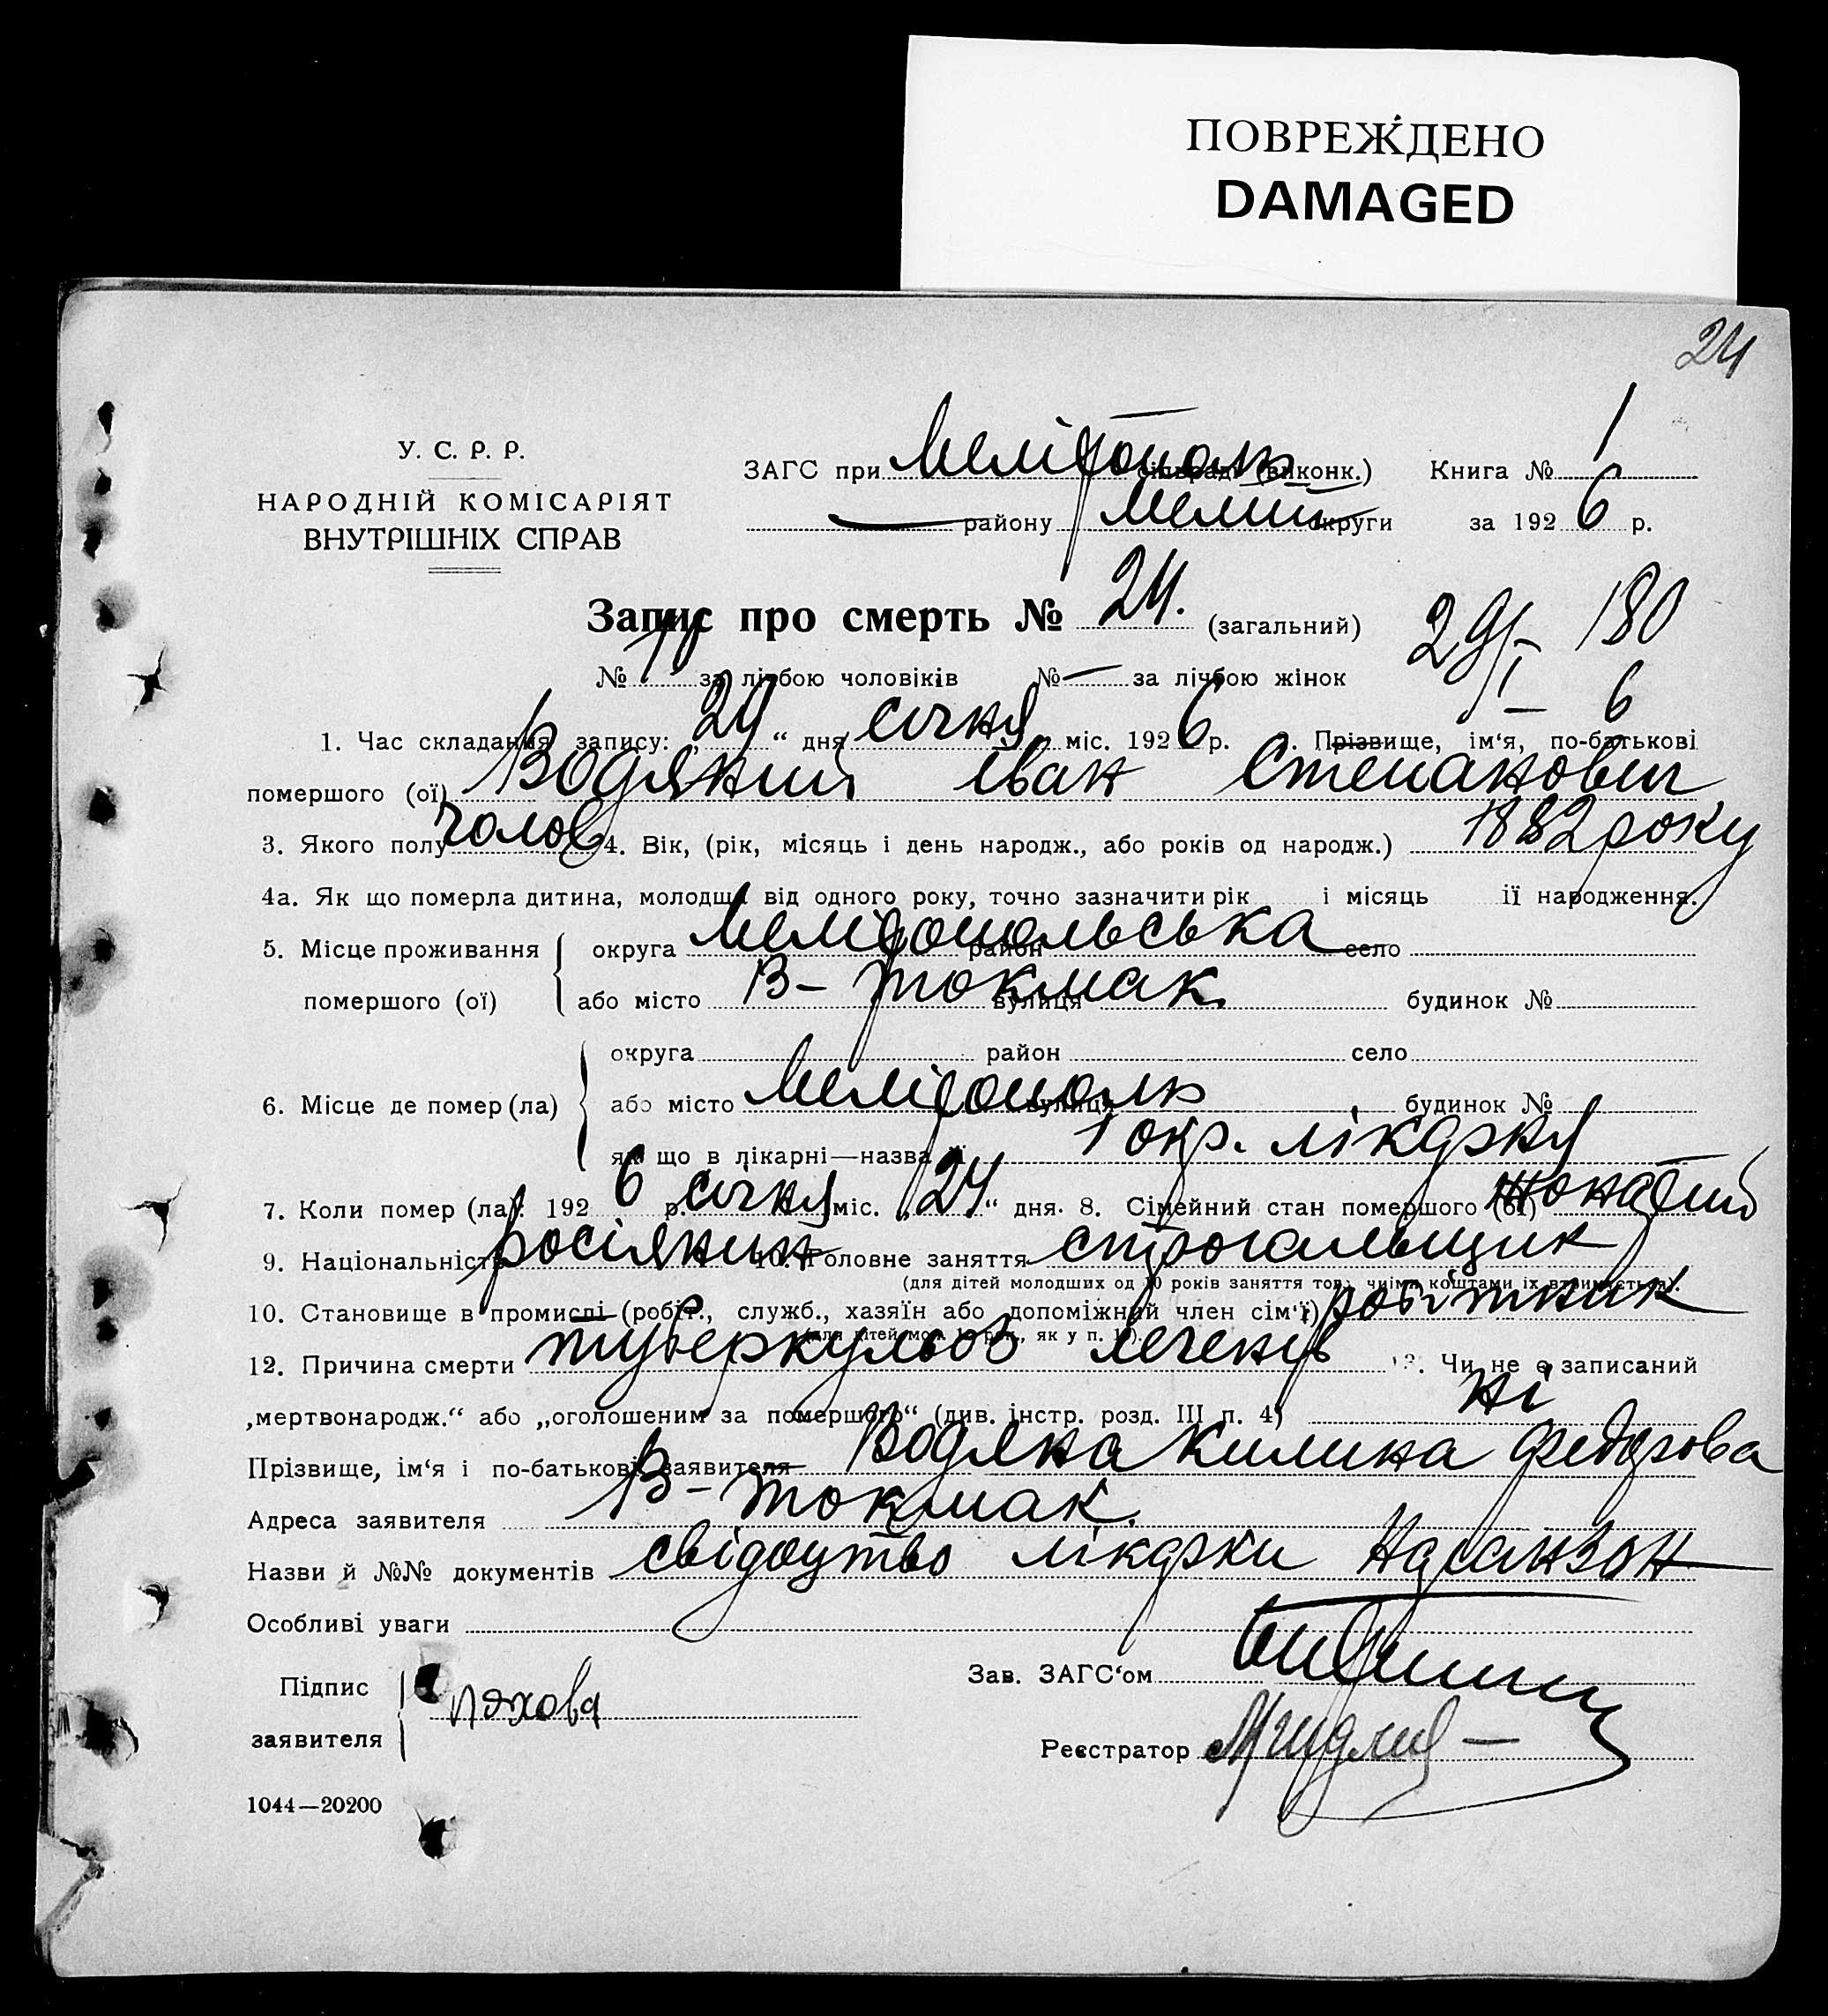 ПОВРЕЖДЕНО
DAMAGED
24
У. С. Р. Р.
НАРОДНІЙ КОМІСАРІЯТ
ВНУТРІШНІХ СПРАВ
ЗАГС при Мелітополь сільраді (виконк.) Книга № 1
— району Меліт округи за 1926 р.
Запис про смерть № 24. (загальний)
29/I 180
№ за лічбою чоловіків № — за лічбою жінок
6
1. Час складання запису: „29“ дня січня міс. 1926 р. 2. Прізвище, ім‘я, по-батькові
помершого (ої) Водяний Іван Степанович
3. Якого полу чолов 4. Вік, (рік, місяць і день народж., або років од народж.) 1882 року
4а. Як що померла дитина, молодша від одного року, точно зазначити рік і місяць її народження.
5. Місце проживання помершого (ої) округа Мелітопольська район село
або місто В-Токмак вулиця будинок №
6. Місце де помер (ла) округа район село
або місто Мелітополь вулиця будинок №
як що в лікарні—назва її 1 окр. лікарня
7. Коли помер (ла): 1926 р. січня міс. „24“ дня. 8. Сімейний стан помершого (ої) жонатий
9. Національність росіянин 10. Головне заняття строгальщик
(для дітей молодших од 10 років заняття того, чиїми коштами їх втримується).
10. Становище в промислі (робіт., служб., хазяїн або допоміжний член сім‘ї) робітник
(для дітей мол. 10 рок., як у п. 10).
12. Причина смерти туберкульоз легенів 13. Чи не є записаний
„мертвонародж.“ або „оголошеним за помершого“ (див. інстр. розд. III п. 4) ні
Прізвище, ім‘я і по-батькові заявителя Водяна Килина Федорова
Адреса заявителя В-Токмак.
Назви й №№ документів свідоцтво лікарки
Особливі уваги
Підпис заявителя
Зав. ЗАГС‘ом
Реєстратор
1044—20200